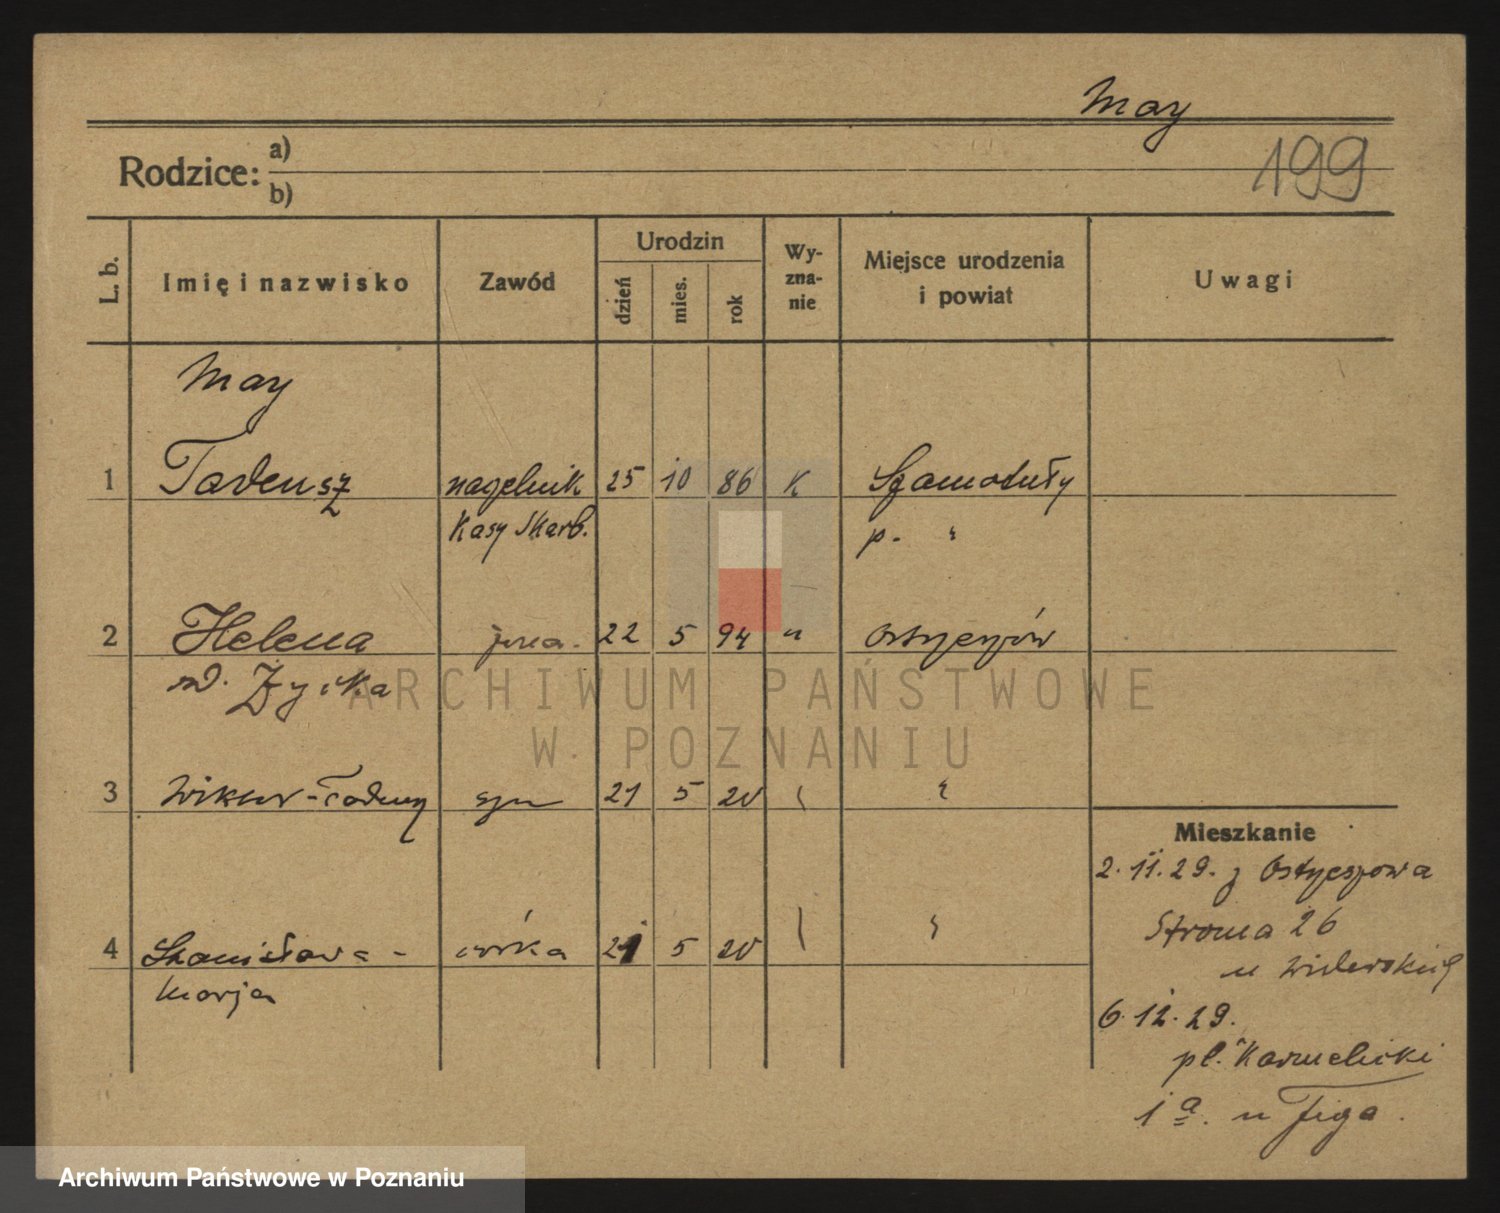 May
199
Rodzice: a)
b)
L. b.
Imię i nazwisko
Zawód
Urodzin
dzień
mies.
rok
Wy-
zna-
nie
Miejsce urodzenia
i powiat
Uwagi
May
1 Tadeusz nagelnik 25 10 86 K Szamotuły
Kasy Skarb. p. "
2 Helena żona. 22 5 94 " Ostrzeszów
Życka
3 Wiktor-Tadeusz syn 21 5 20 " "
4 Stanisława- córka 21 5 20 " "
Marja
Mieszkanie
2.11.29. z Ostrzeszowa
Stroma 26
u
6.12.29.
pl. Karmelicki
1a. u Figa.
ARCHIWUM PAŃSTWOWE
W POZNANIU
Archiwum Państwowe w Poznaniu